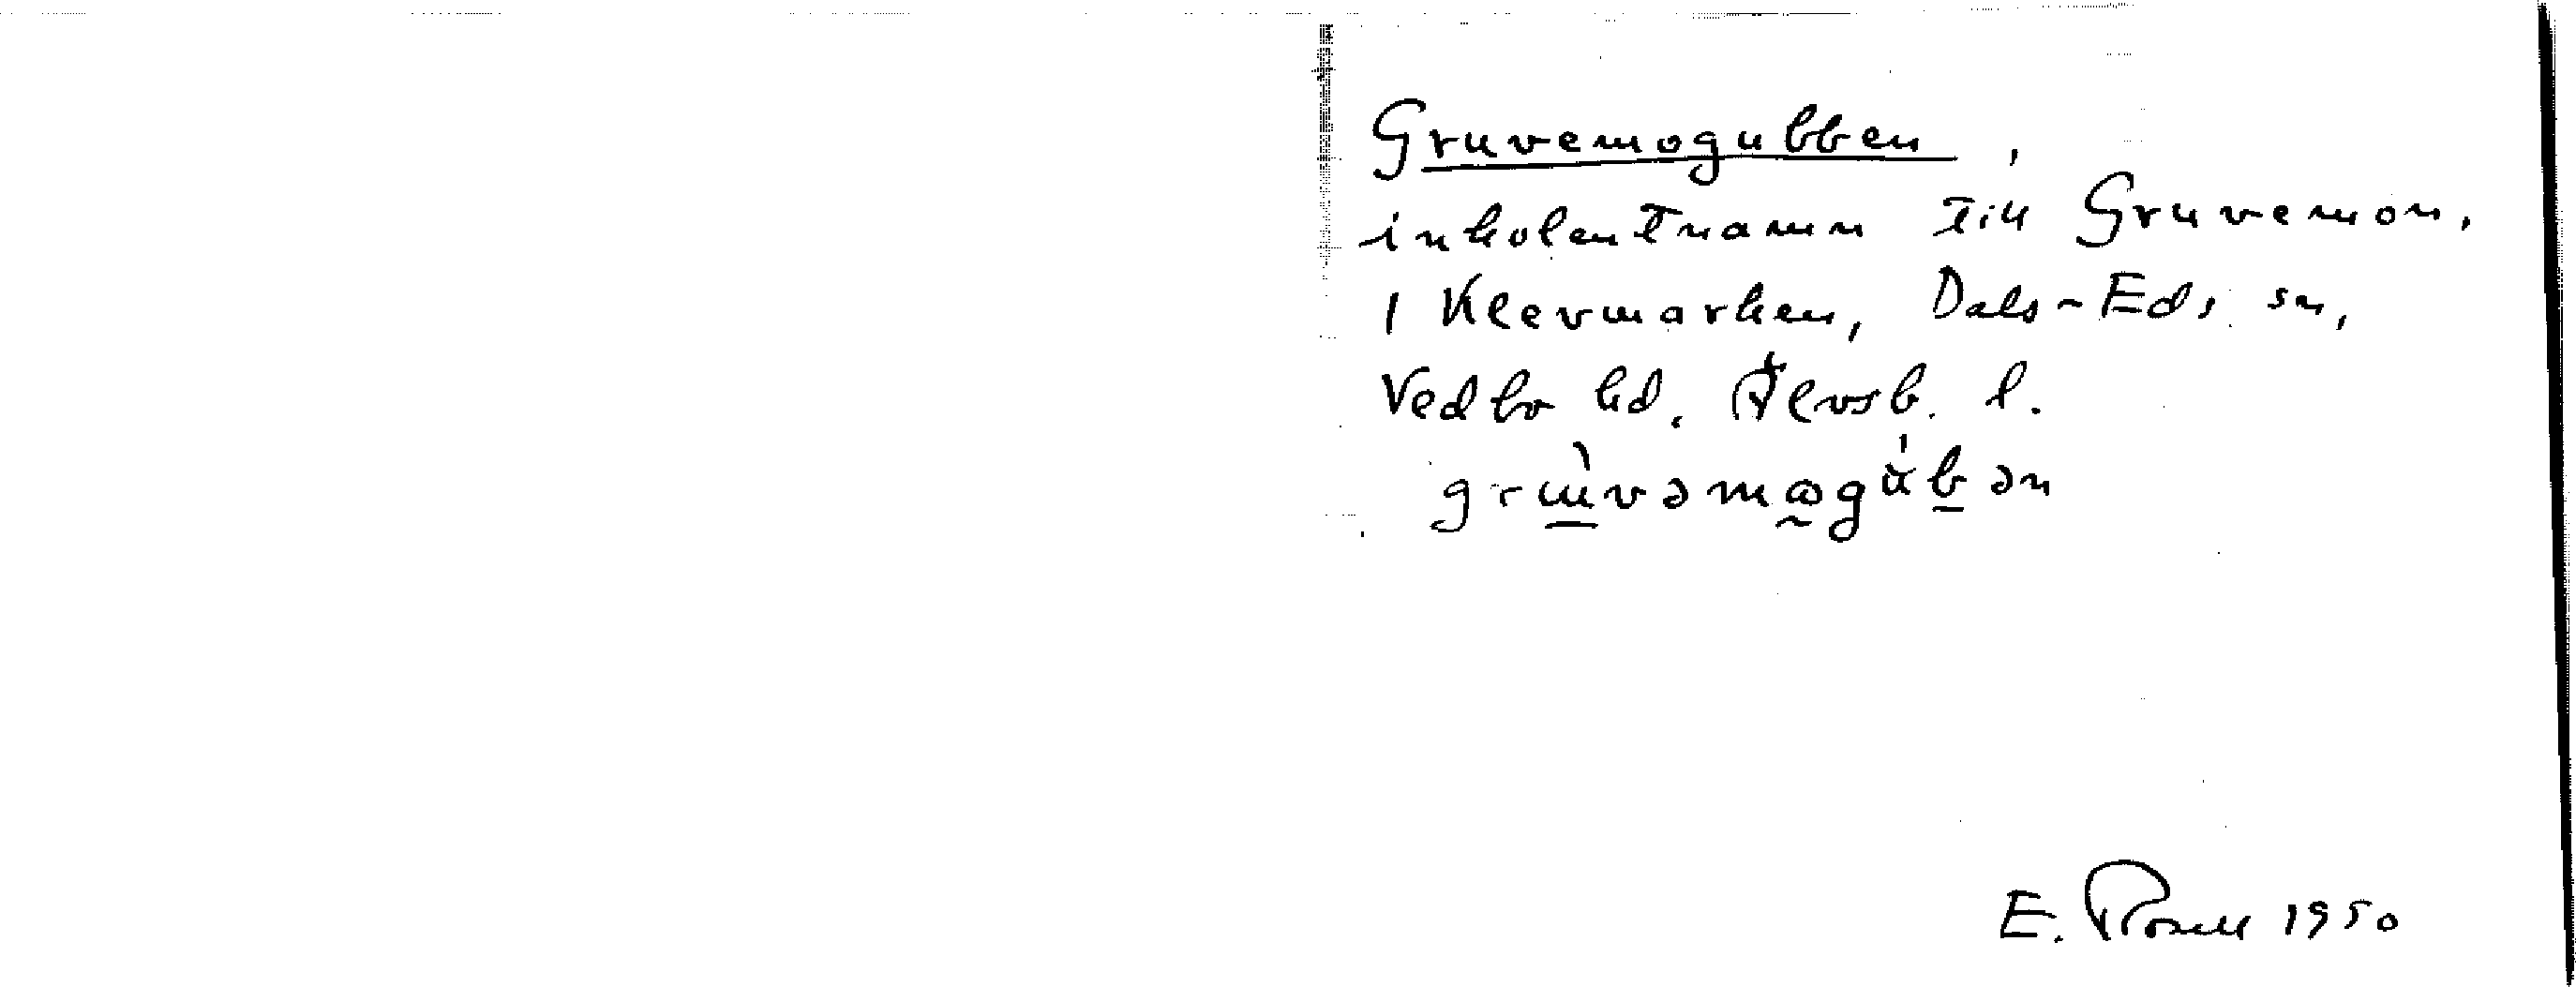 Gruvemogubben,
inkolentnamn till Gruvemon,
1 Klevmarken, Dals-Eds sn,
Vedbo hd, Älvsb. l.
E. Rosell 1950